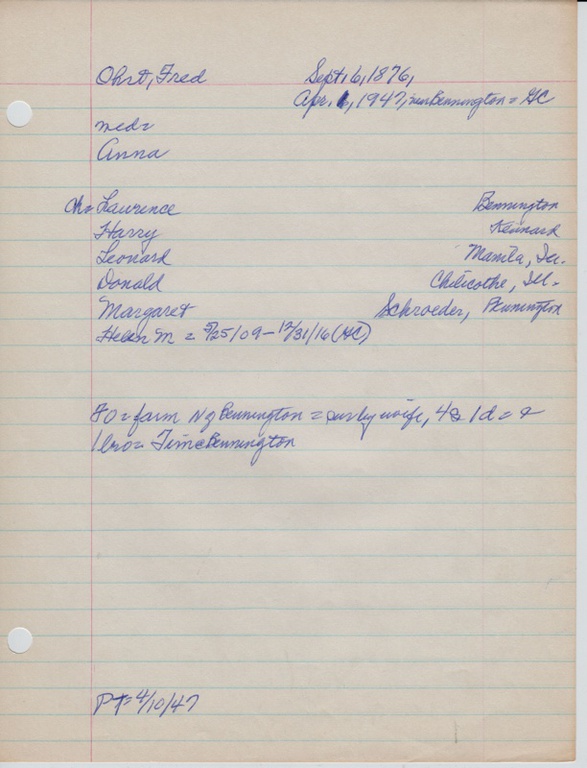 Ohrt, Fred Sept. 6, 1876,
Apr. 6, 1947, near Bennington = HC
med=
Anna
Ch= Laurence Bennington
Harry Kennard
Leonard Manila, Ia.
Donald Chilicothe, Ill.
Margaret Schroeder, Bennington
Helen M = 5/25/09 – 12/31/16 (HC)
FO = farm N of Bennington = sur by wife, 4s 1d = &
1 bro = Jim Bennington
PT = 4/10/47